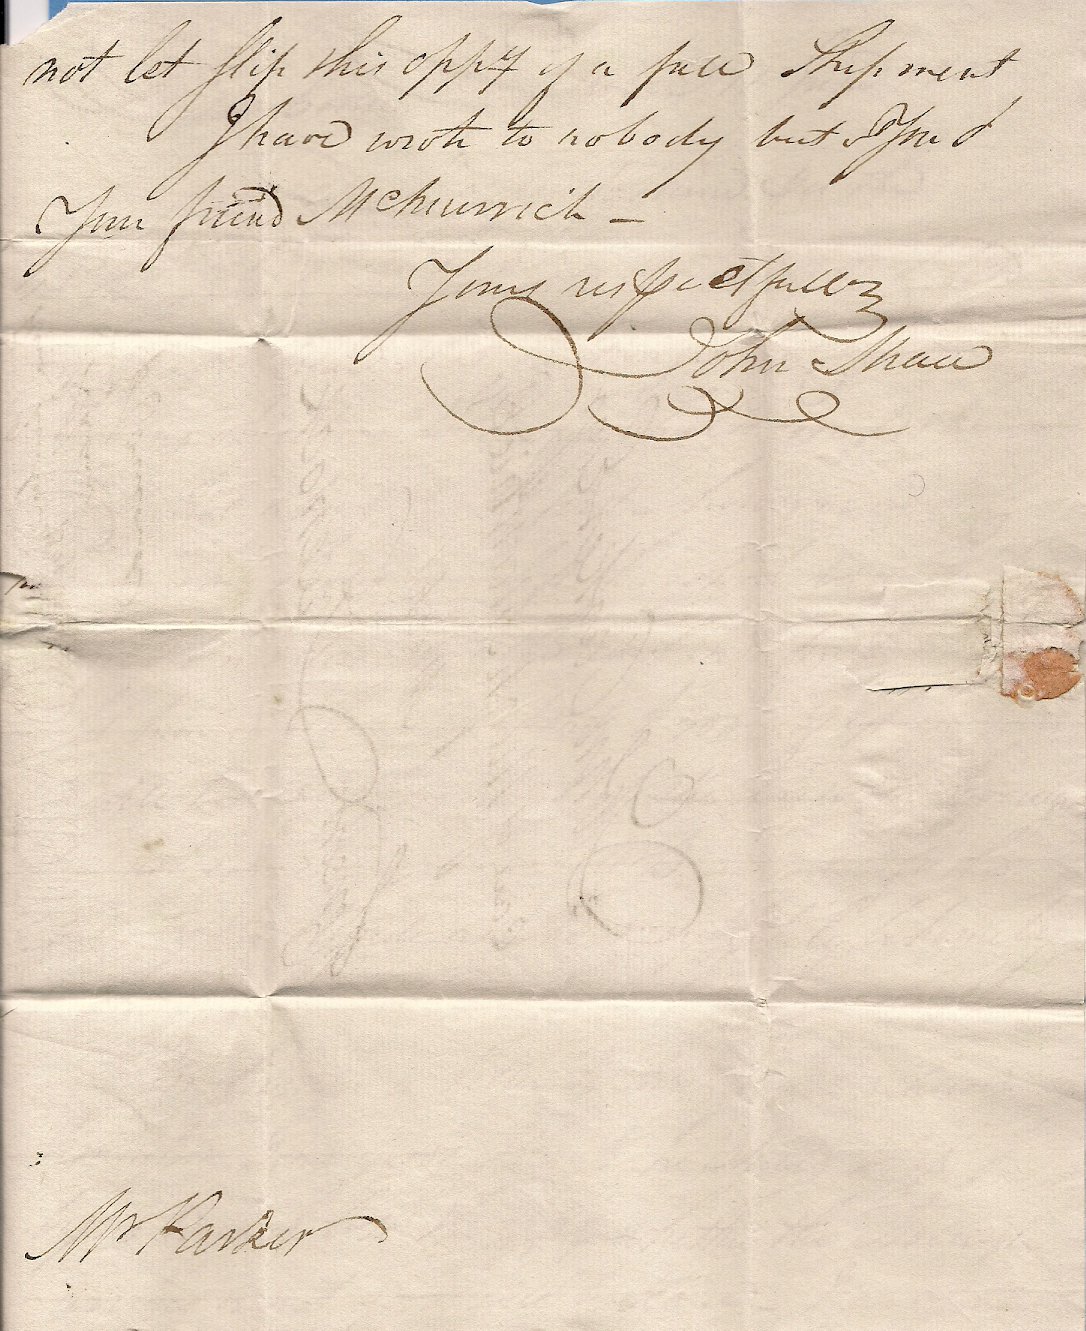 not let slip this oppy of a full Shipment
I have wrote to nobody but you &
Your friend McHurrich —
Yours respectfully
John Shaw
Mr Parker